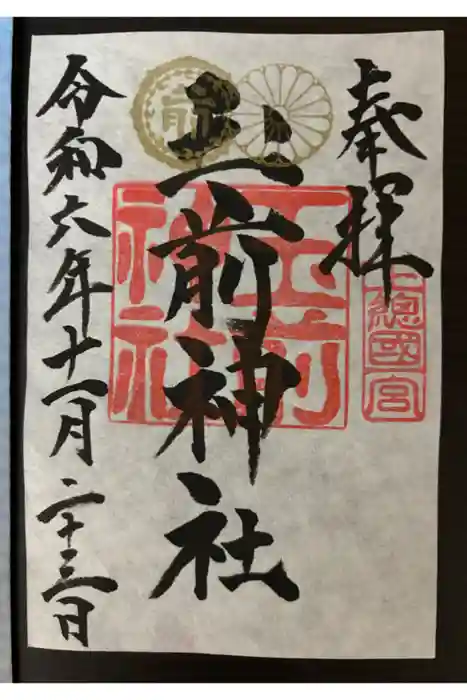 奉拝
上總國一宮
玉前神社
玉前神社
令和六年十一月二十三日